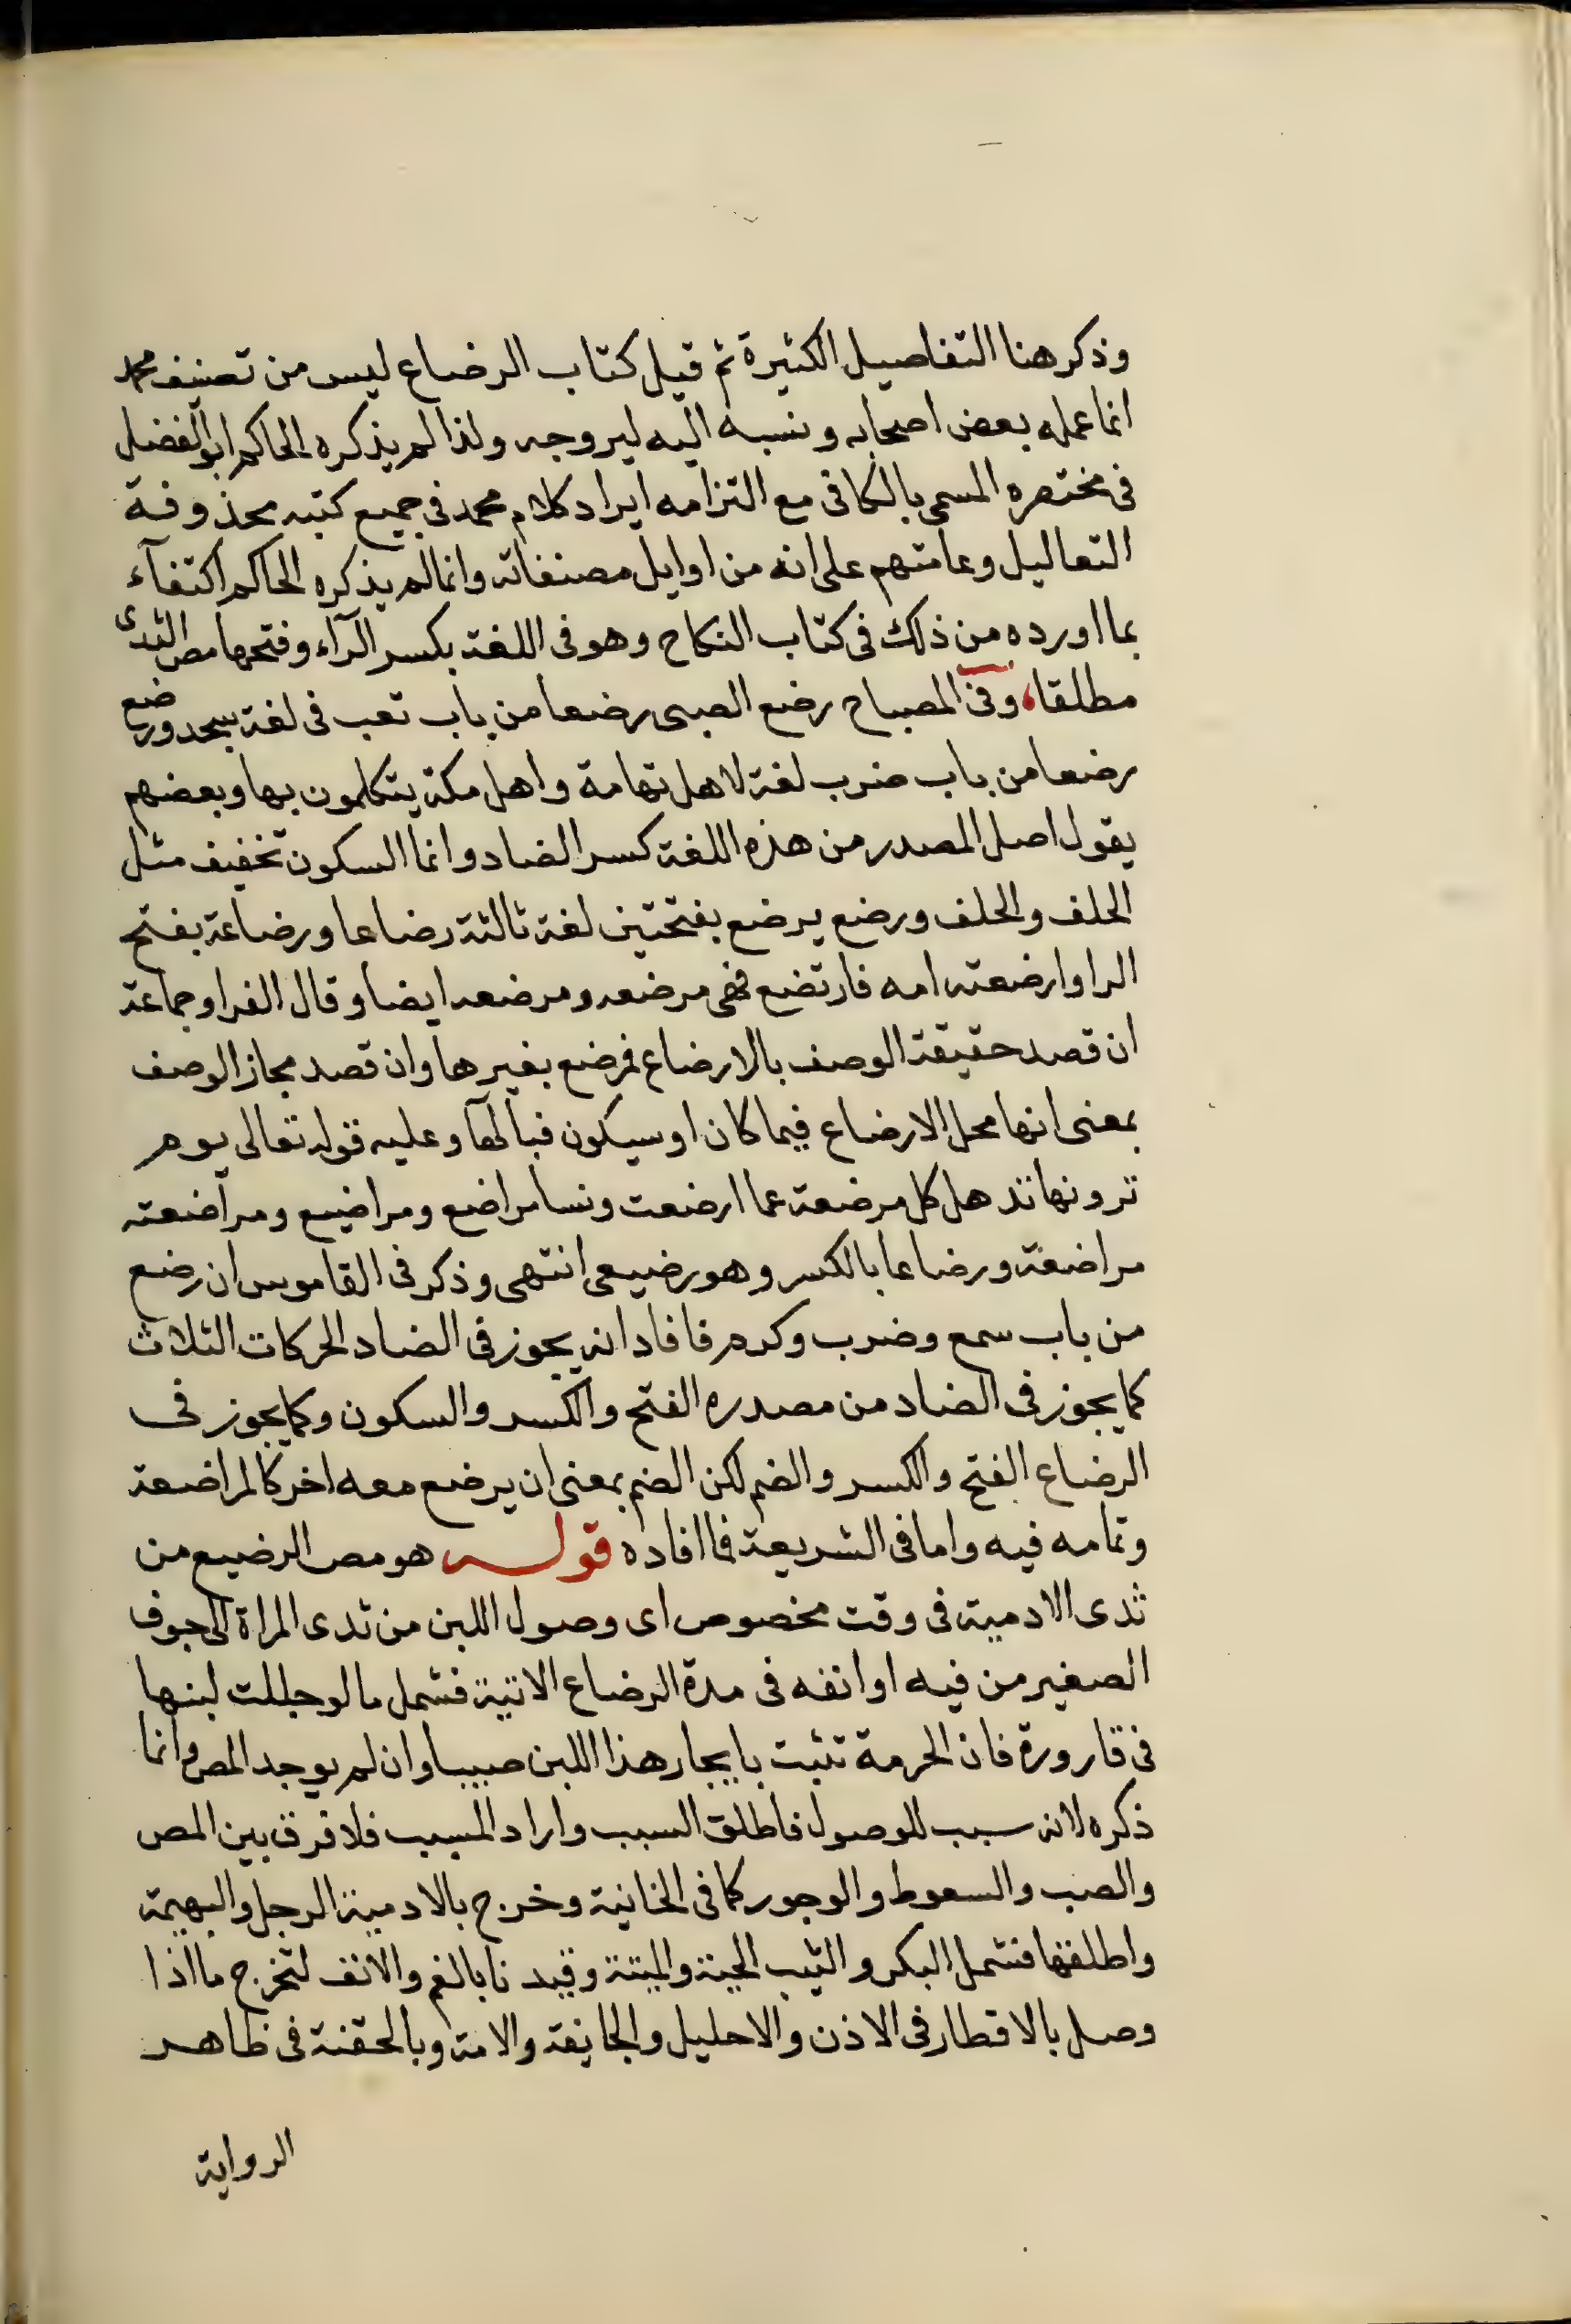 وذكر هنا التفاصيل الكثيرة ثم قيل كتاب الرضاع ليس من تصنيف محمد
انما عمله بعض اصحابه ونسبه اليه ليروجه ولذا لم يذكره الحاكم ابوالفضل
فى مختصره المسمى بالكافى مع التزامه ايراد كلام محمد فى جميع كتبه محذوفة
التعاليل وعامتهم على انه من اوايل مصنفاته وانما لم يذكره الحاكم اكتفآء
بما اورده من ذلك فى كتاب النكاح وهو فى اللغة بكسر الرآء وفتحها مص الثدى
مطلقا، وفى المصباح رضع الصبى رضعا من باب تعب فى لغة نجد ورضع
رضعا من باب ضرب لغة لاهل تهامة واهل مكة يتكلمون بها وبعضهم
يقول اصل المصدر من هذه اللغة كسر الضاد وانما السكون تخفيف مثل
الحلف والحلف ورضع يرضع بفتحتين لغة ثالثة رضاعا ورضاعة بفتح
الرا وارضعته امه فارتضع فهى مرضع ومرضعه ايضا وقال الفرا وجماعة
ان قصد حقيقة الوصف بالارضاع فمرضع بغير ها وان قصد مجاز الوصف
بمعنى انها محل الارضاع فيما كان او سيكون فبالهآ وعليه قوله تعالى يوم
ترونها تذهل كل مرضعة عما ارضعت ونسا مراضع ومراضيع ومراضعته
مراضعة ورضاعا بالكسر وهو رضيعى انتهى وذكر فى القاموس ان رضع
من باب سمع وضرب وكرم فافاد انه يجوز فى الضاد الحركات الثلاث
كما يجوز فى الضاد من مصدره الفتح والكسر والسكون وكما يجوز فى
الرضاع الفتح والكسر والضم لكن الضم بمعنى ان يرضع معه اخر كالمراضعة
وتمامه فيه واما فى الشريعة فما افاده قوله هو مص الرضيع من
ثدى الادمية فى وقت مخصوص اى وصول اللبن من ثدى المراة الى جوف
الصغير من فيه او انفه فى مدة الرضاع الاتية فشمل ما لو حللت لبنها
فى قارورة فان الحرمة تثبت بايجار هذا اللبن صبيا وان لم يوجد المص وانما
ذكره لانه سبب للوصول فاطلق السبب واراد المسبب فلا فرق بين المص
والصب والسعوط والوجور كما فى الخانية وخرج بالادمية الرجل والبهيمة
واطلقها فشمل البكر والثيب الحية والميتة وقيد نا بالفم والانف لتخرج ما اذا
وصل بالاقطار فى الاذن والاحليل والجائفة والامة وبالحقنة فى ظاهر
الرواية